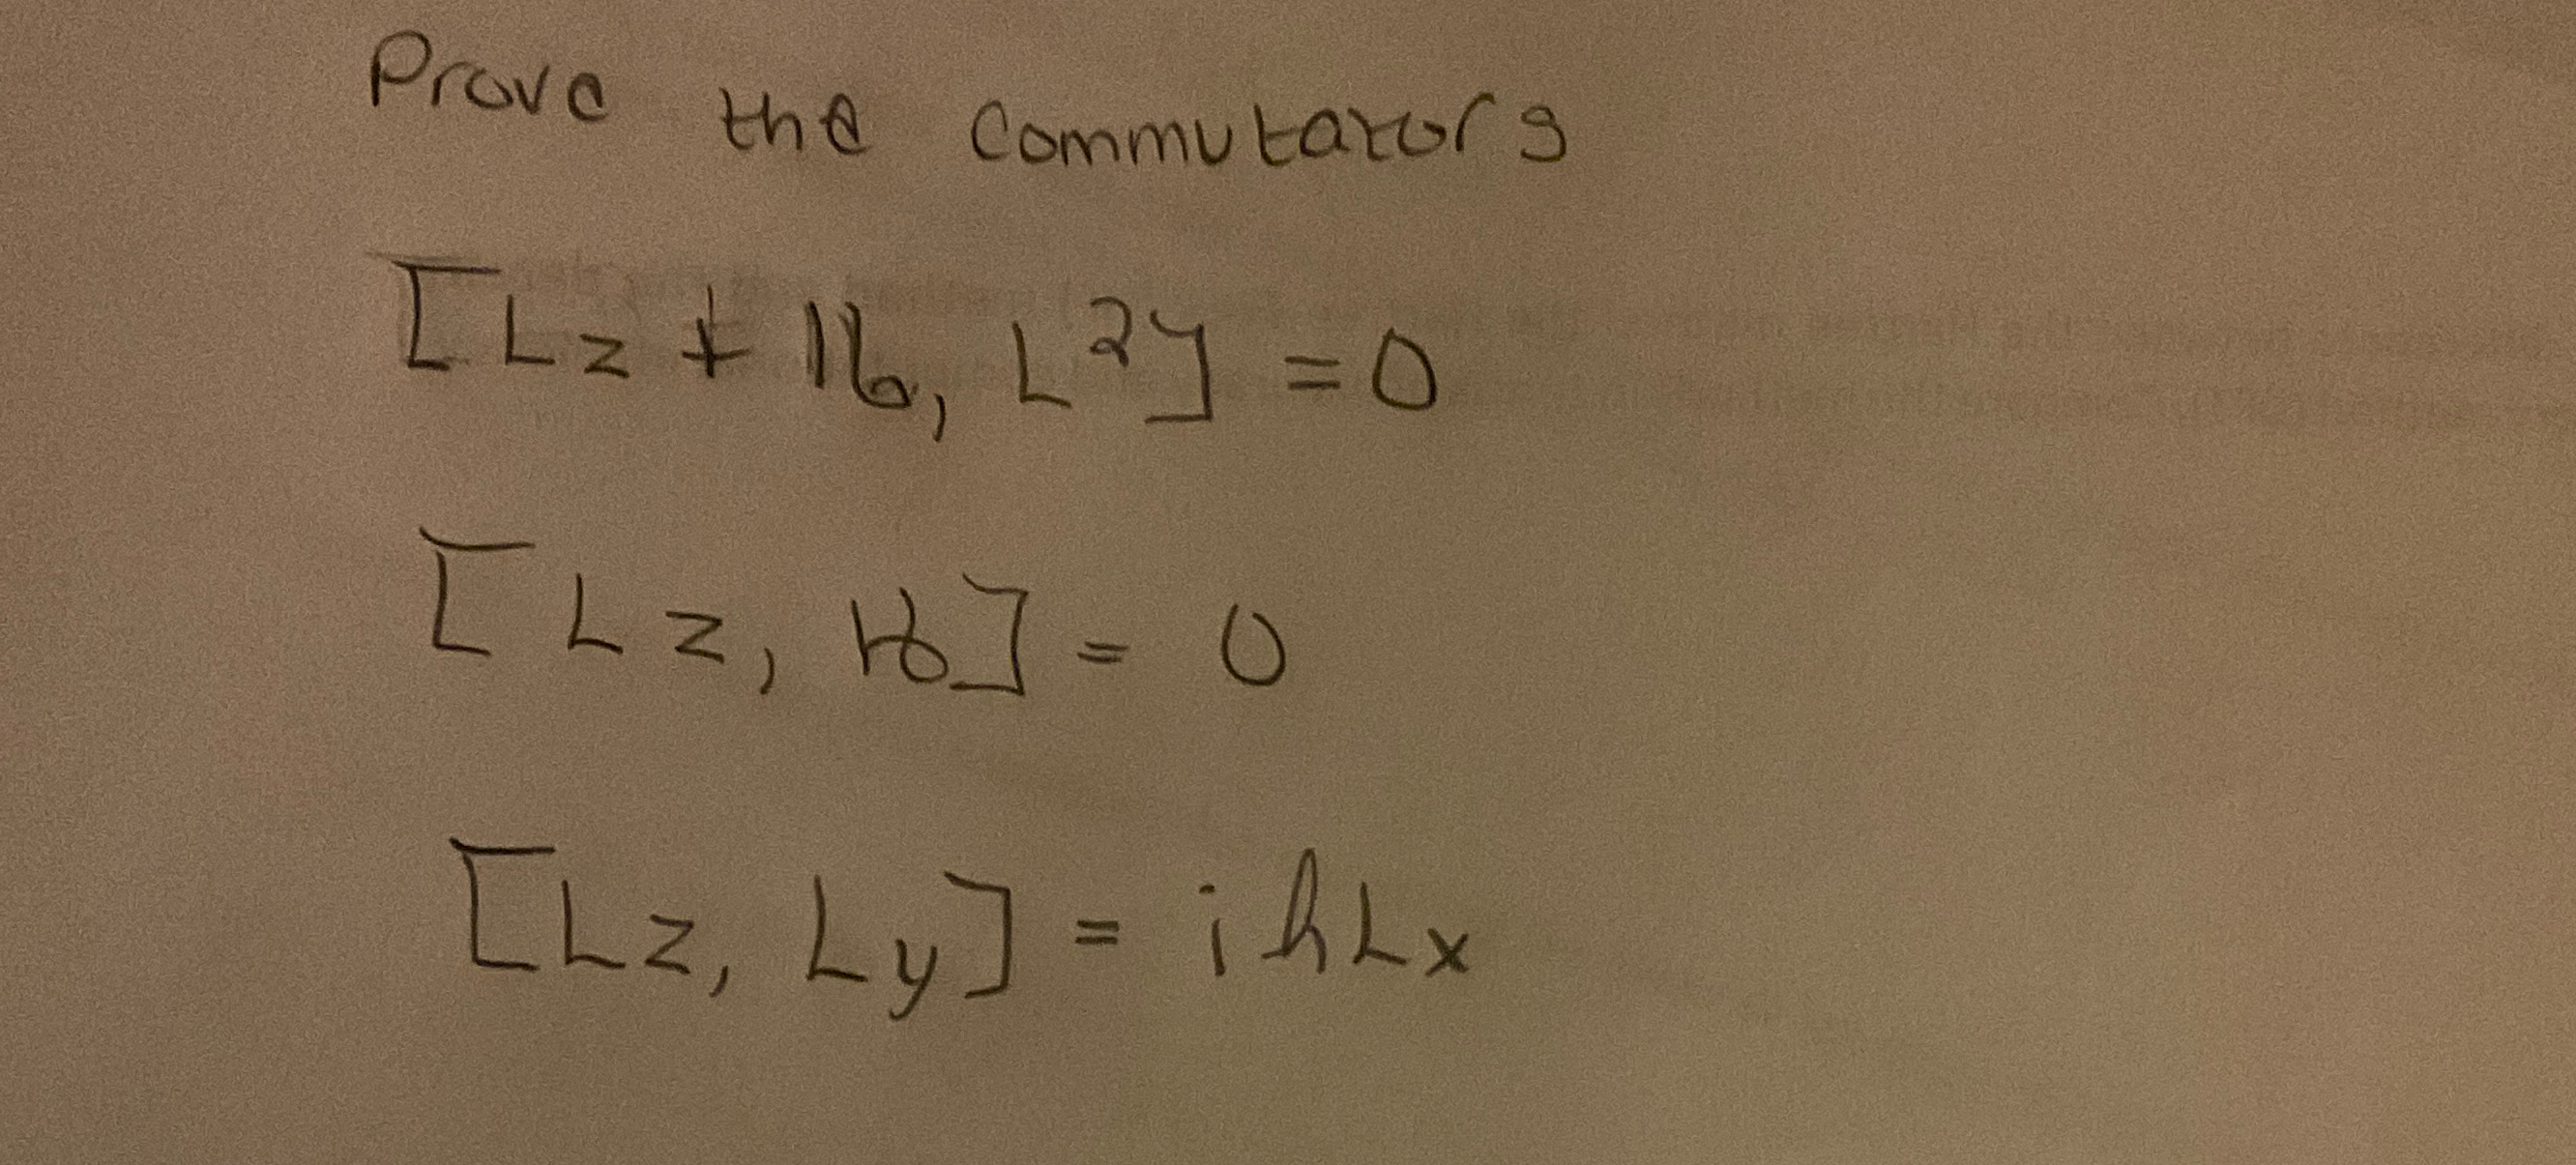 Prove the commutators
[Lz + 16, L²] = 0
[Lz, 16] = 0
[Lz, Ly] = iħLx